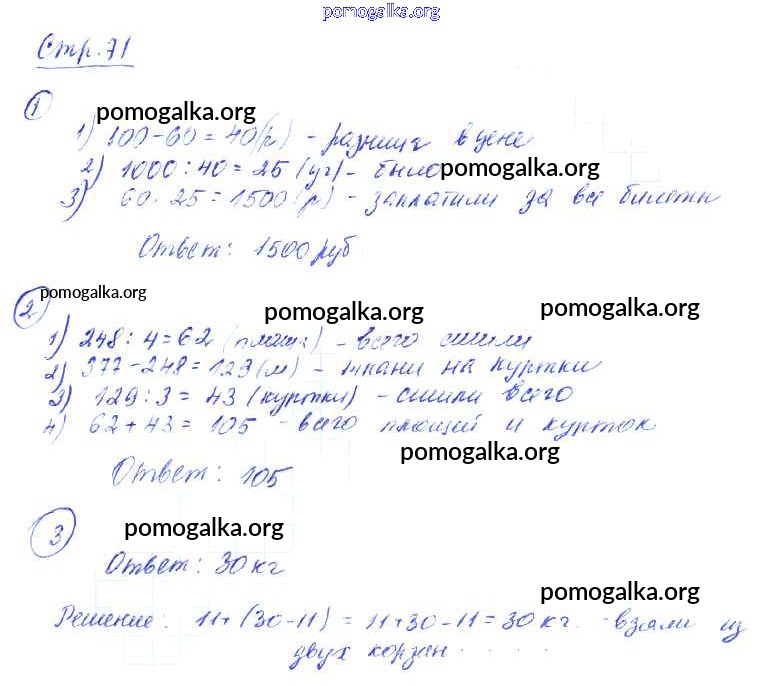 pomogalka.org
Стр. 71
1
pomogalka.org
1) 100-60=40(р) - разница в цене
2) 1000:40=25 (уч) - было pomogalka.org
3) 60·25=1500(р) - заплатили за все билеты
Ответ: 1500 руб
pomogalka.org
2
pomogalka.org
pomogalka.org
1) 248:4=62 (плаща) - всего сшили
2) 377-248=129(м) - ткани на куртки
3) 129:3=43 (куртки) - сшили всего
4) 62+43=105 - всего плащей и курток
pomogalka.org
Ответ: 105
3
pomogalka.org
Ответ: 30 кг
pomogalka.org
Решение: 11+(30-11)=11+30-11=30 кг. - взяли из
двух корзин